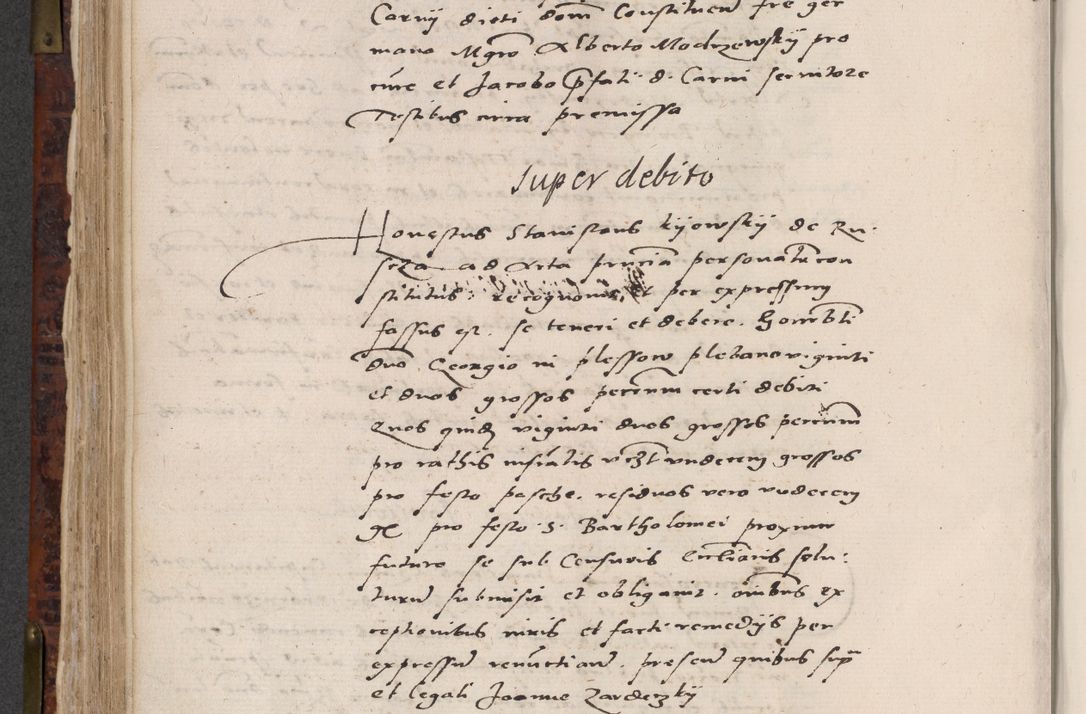 Carnÿ dicti domͫ Constituen̄ fre ger
mano Mgrō Alberto Modrzewskÿ pro
cure et Jacobo p̄fati d. Carni servitore
Testibus circa premissa
super debito
Honestus Stanislaus kÿowskÿ de Ru
scza ad Acta pñcia personalr̄ con
stitutus recognovit et per expressum
fassus est se teneri et debere Honorabli
dno Georgio in plessow plebano viginti
et duos grossos pecuniar certi debiti
Quos quidē viginti duos grossos pecuniar
pro rathis infrālis vczt undecem grossos
pro festo pasche, residuos vero undecem
gr pro festo S. Bartholomei proximo
futuro se sub Censuris Eccliāsticis solu:
turum submisit et obligavit. omībus ex
ceptionibus iuris et facti remedÿs per
expressum renūctiaū. presen̄ quibus sup̄
et legali Joanne Zardeczkÿ